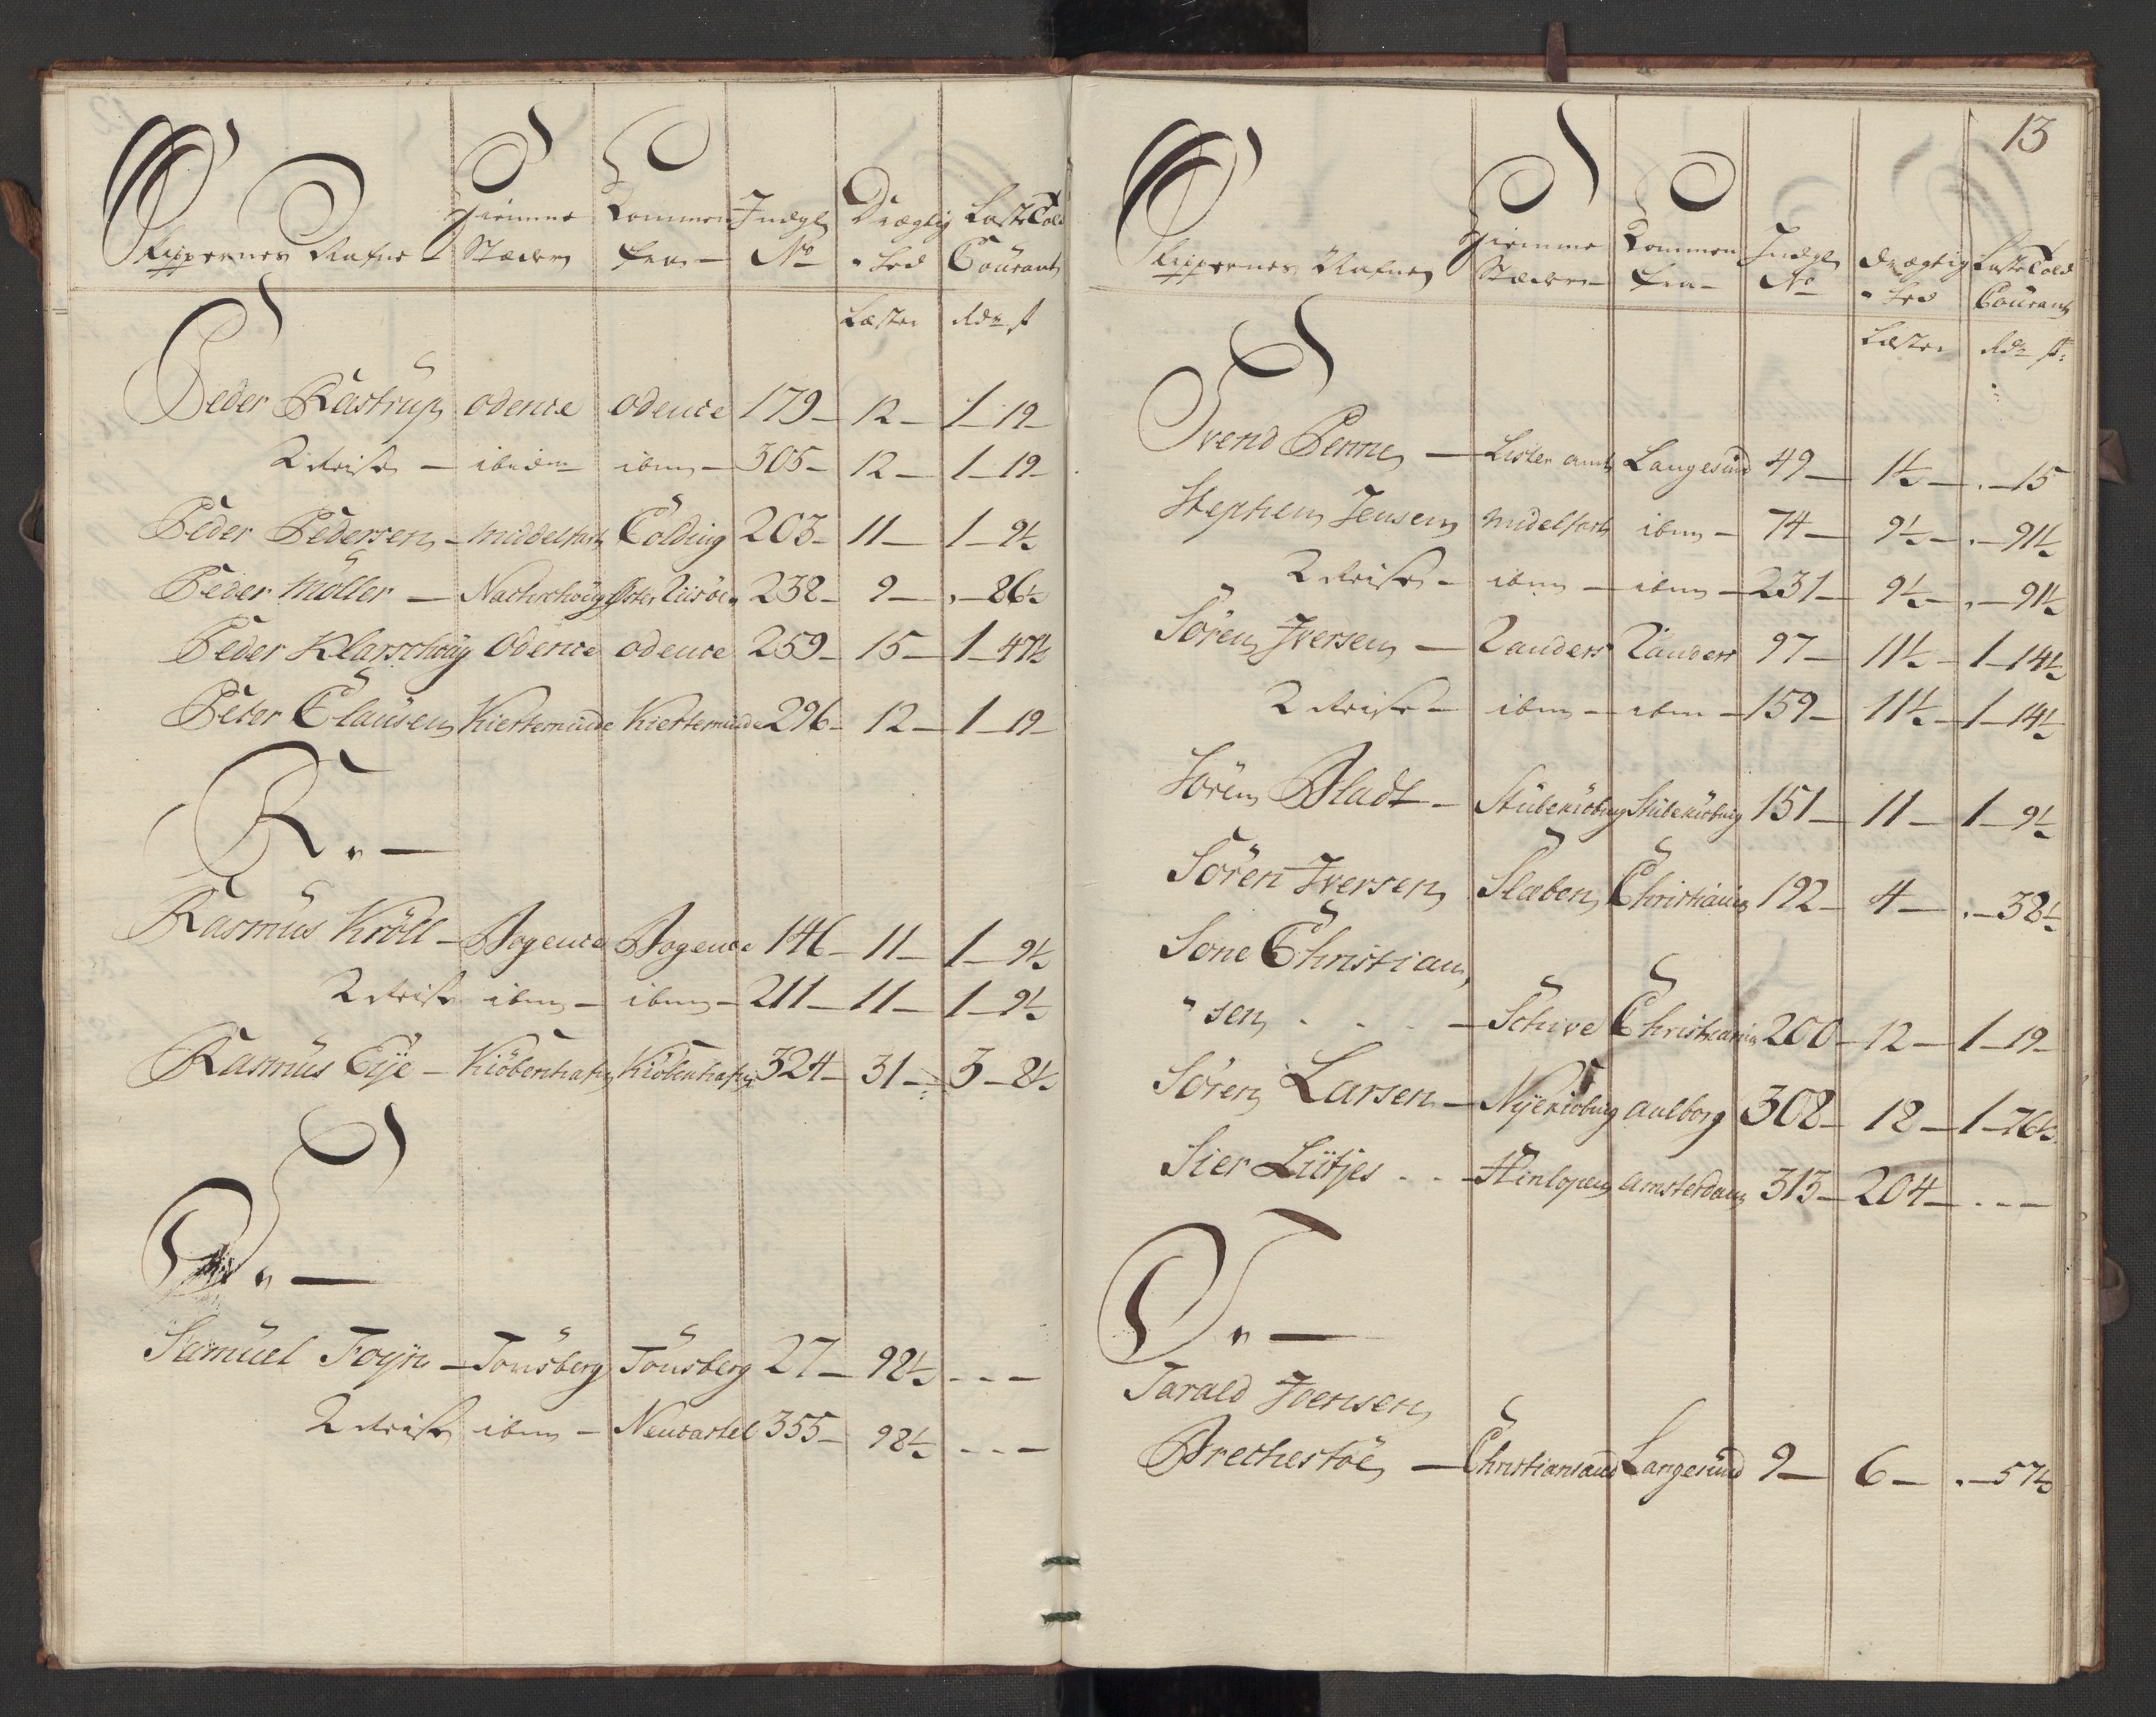 Skippernes Nafne Hiemme Stæder Kommen fra Indgl No Drægtighed Laste Told Courant
Læster Rdr s
Peder Rastrup odence odence 179 12 1 19
2 Reise ibidem ibm 305 12 1 19
Peder Pedersen middelfart Colding 203 11 1 9½
Peder Møller Nachschoug Øster Riisöer 238 9 86½
Peder Klarschoug Odence odence 259 15 1 47½
Peter Clausen Kierteminde Kiertemunde 296 12 1 19
R.
Rasmus Kröll Bogence Bogence 146 11 1 9½
2 Reise ibm ibm 211 11 1 9½
Rasmus Eye Kiöbenhafn Kiöbenhafn 324 31 3 8½
S.
Samuel Foyn Tonsberg Tönsberg 27 98½
2 Reise ibm Neucastel 355 98½
13
Skippernes Nafne Hiemme Stæder Kommen fra Indgl No Drægtighed Laste Told Courant
Læster Rdr s
Svend Penne Lister amt Langesund 49 1½ 15
Stephen Jensen Midelfart ibm 74 9½ 91½
2 Reise ibm ibm 231 9½ 91½
Sören Iversen Randers Randers 97 11½ 1 14½
2 Reise ibm ibm 159 11½ 1 14½
Sören Bladt Stubekiöbing Stubekiöbing 151 11 1 9½
Sören Iversen Slæben Christiania 192 4 38½
Sone Christian
sen Schive Christiania 200 12 1 19
Sören Larsen Nyekiobing aalborg 308 18 1 76½
Sier Lütjes Hinlopen Amsterdam 313 204
T.
Tarald Joensen
Brechestöe Christiansand Langesund 9 6 57½